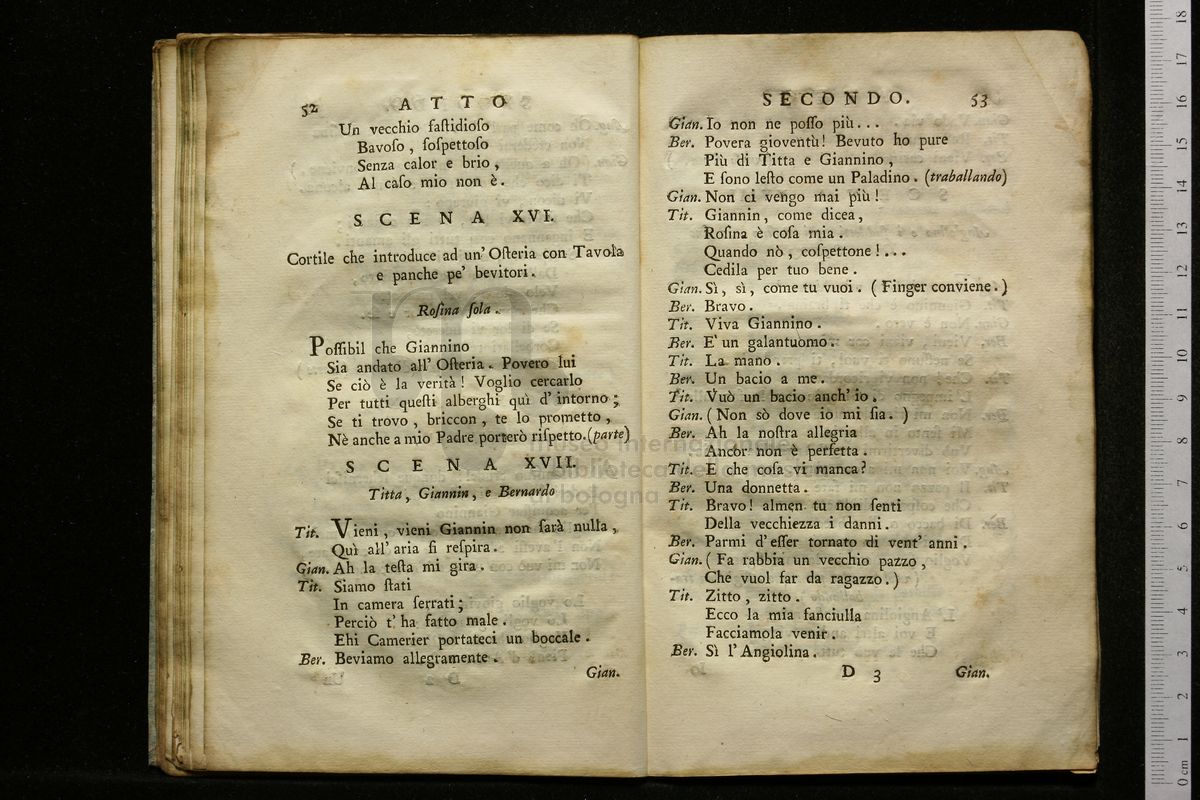 52 ATTO
Un vecchio faſtidioſo
Bavoſo , ſoſpettoſo
Senza calor e brio ,
Al caſo mio non è .
SCENA XVI.
Cortile che introduce ad un' Oſteria con Tavola
e panche pe' bevitori .
Roſina ſola .
Poſſibil che Giannino
Sia andato all' Oſteria . Povero lui
Se ciò è la verità ! Voglio cercarlo
Per tutti queſti alberghi quì d' intorno ;
Se ti trovo , briccon , te lo prometto ,
Nè anche a mio Padre porterò riſpetto. (parte)
SCENA XVII.
Titta , Giannin , e Bernardo
Tit. Vieni , vieni Giannin non ſarà nulla ,
Quì all' aria ſi reſpira .
Gian. Ah la teſta mi gira .
Tit. Siamo ſtati
In camera ſerrati ;
Perciò t' ha fatto male .
Ehi Camerier portateci un boccale .
Ber. Beviamo allegramente .
Gian.
SECONDO. 53
Gian. Io non ne poſſo più ...
Ber. Povera gioventù ! Bevuto ho pure
Più di Titta e Giannino ,
E ſono leſto come un Paladino . (traballando)
Gian. Non ci vengo mai più !
Tit. Giannin , come dicea ,
Roſina è coſa mia .
Quando nò , coſpettone ! ...
Cedila per tuo bene .
Gian. Sì , sì , come tu vuoi . ( Finger conviene . )
Ber. Bravo .
Tit. Viva Giannino .
Ber. E' un galantuomo .
Tit. La mano .
Ber. Un bacio a me .
Tit. Vuò un bacio anch' io .
Gian. ( Non sò dove io mi ſia . )
Ber. Ah la noſtra allegria
Ancor non è perfetta .
Tit. E che coſa vi manca ?
Ber. Una donnetta .
Tit. Bravo ! almen tu non ſenti
Della vecchiezza i danni .
Ber. Parmi d' eſſer tornato di vent' anni .
Gian. ( Fa rabbia un vecchio pazzo ,
Che vuol far da ragazzo . )
Tit. Zitto , zitto .
Ecco la mia fanciulla
Facciamola venir .
Ber. Sì l' Angiolina .
D 3 Gian.
museo internazionale
biblioteca della musica
di bologna
0 cm 1 2 3 4 5 6 7 8 9 10 11 12 13 14 15 16 17 18